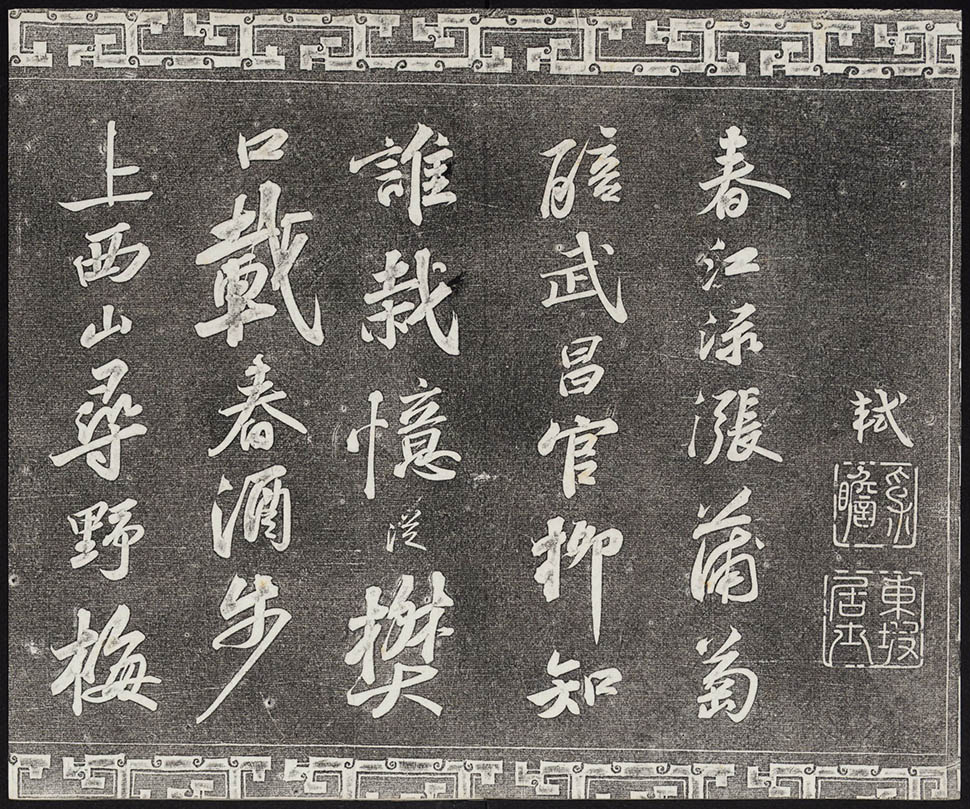 軾
瞻
東坡居士
春江淥漲蒲萄
醅武昌官柳知
誰栽憶從樊
口載春酒步
上西山尋野梅